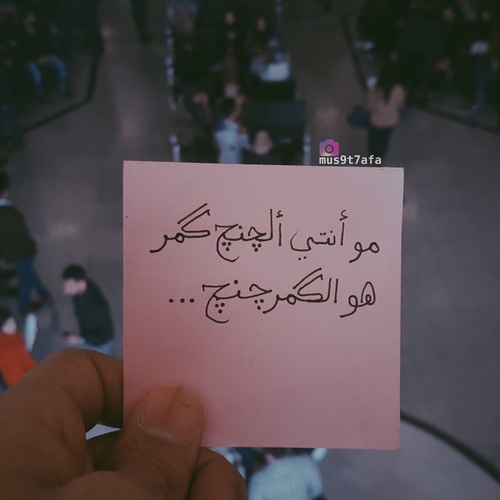 mus9t7afa
مو أنتي ألچنچ گمر
هو الگمر چنچ ...